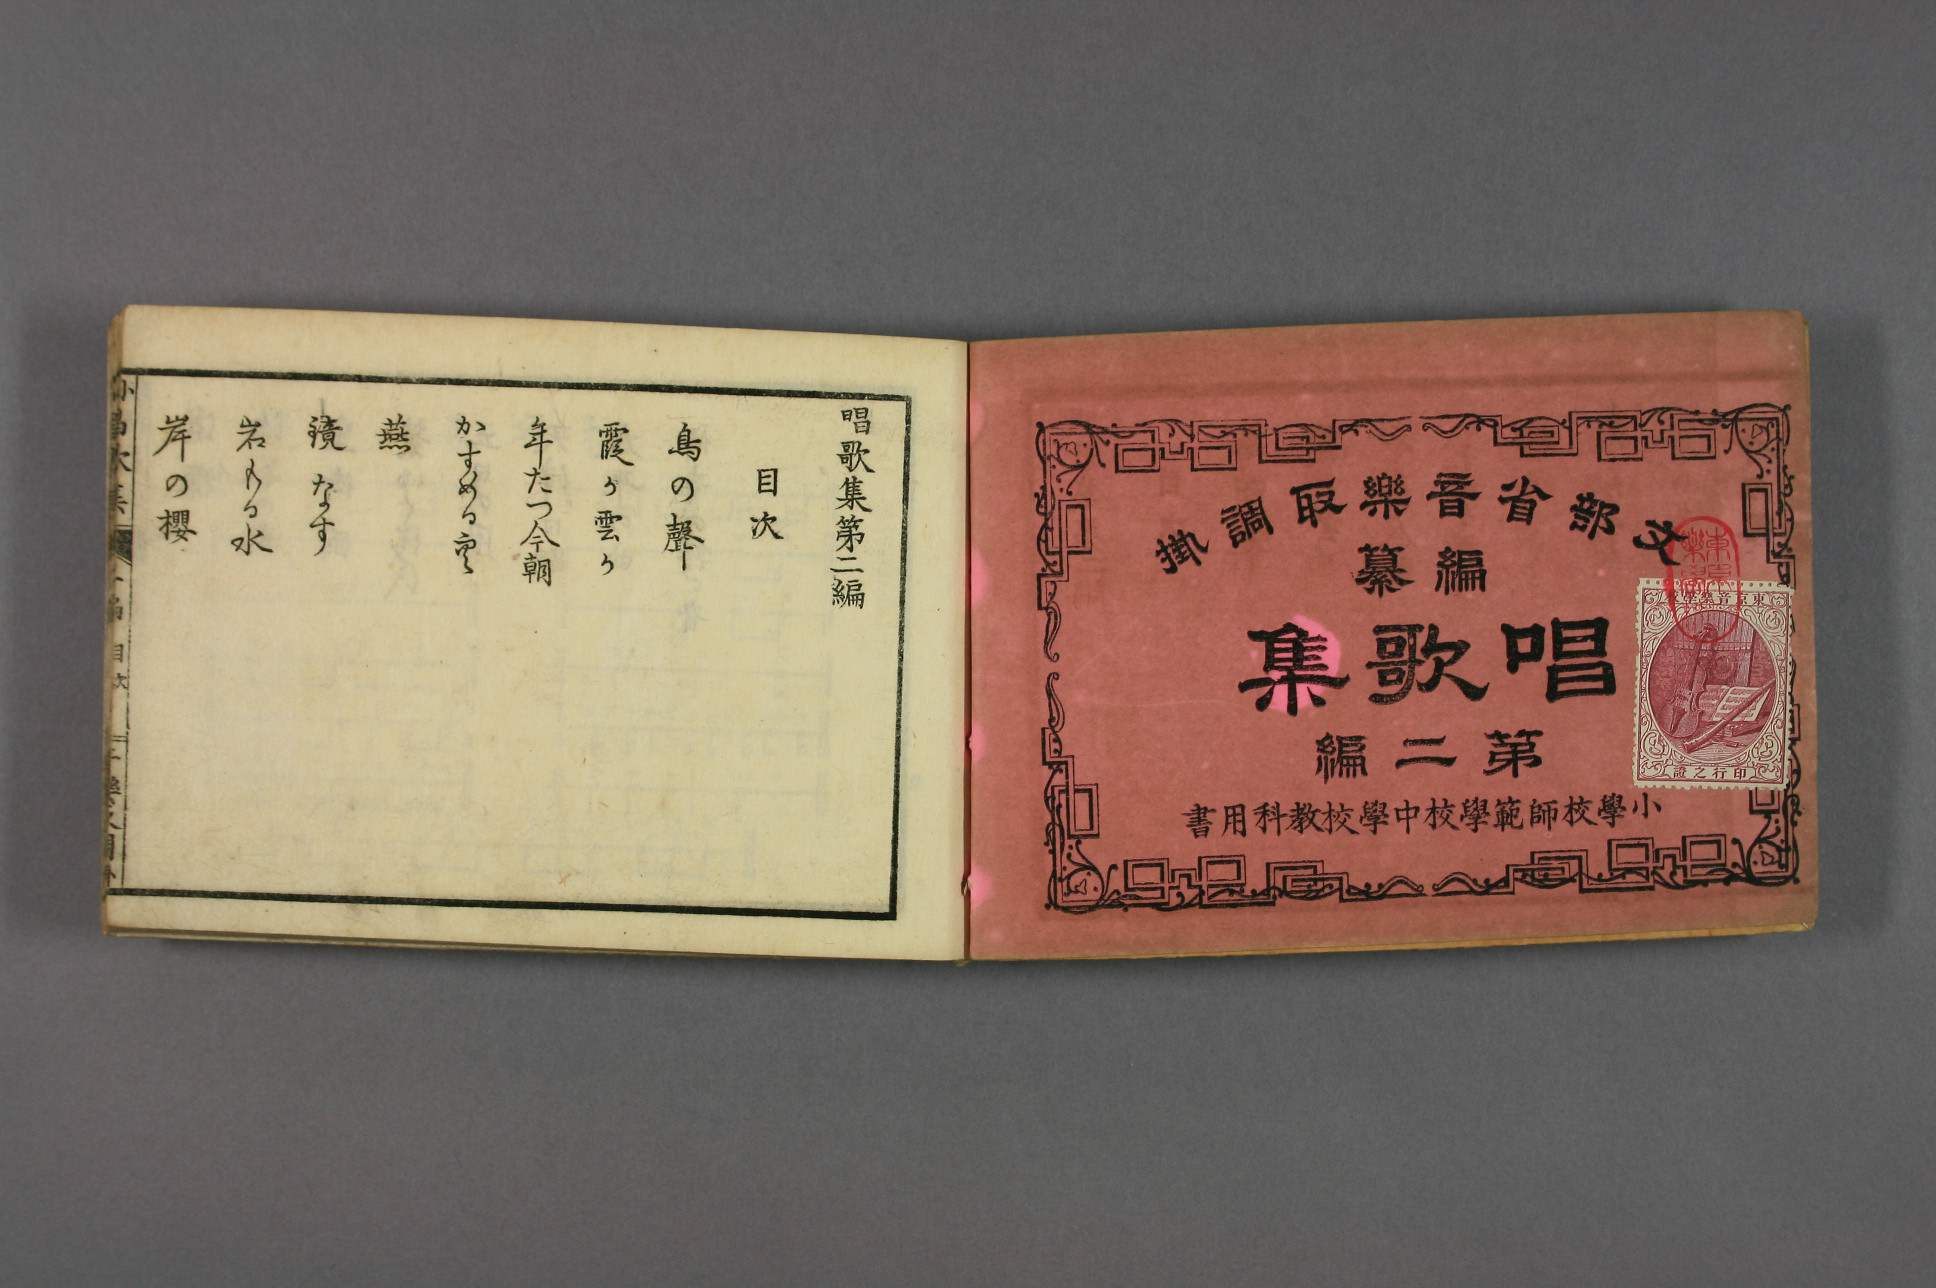 文部省音樂取調掛
編纂
唱歌集
第二編
小學校師範學校中學校教科用書
東京音樂學校
印行之證
唱歌集第二編
目次
鳥の聲
霞か雲か
年たつ今朝
かすめる空
燕
鏡なす
岩もる水
岸の櫻